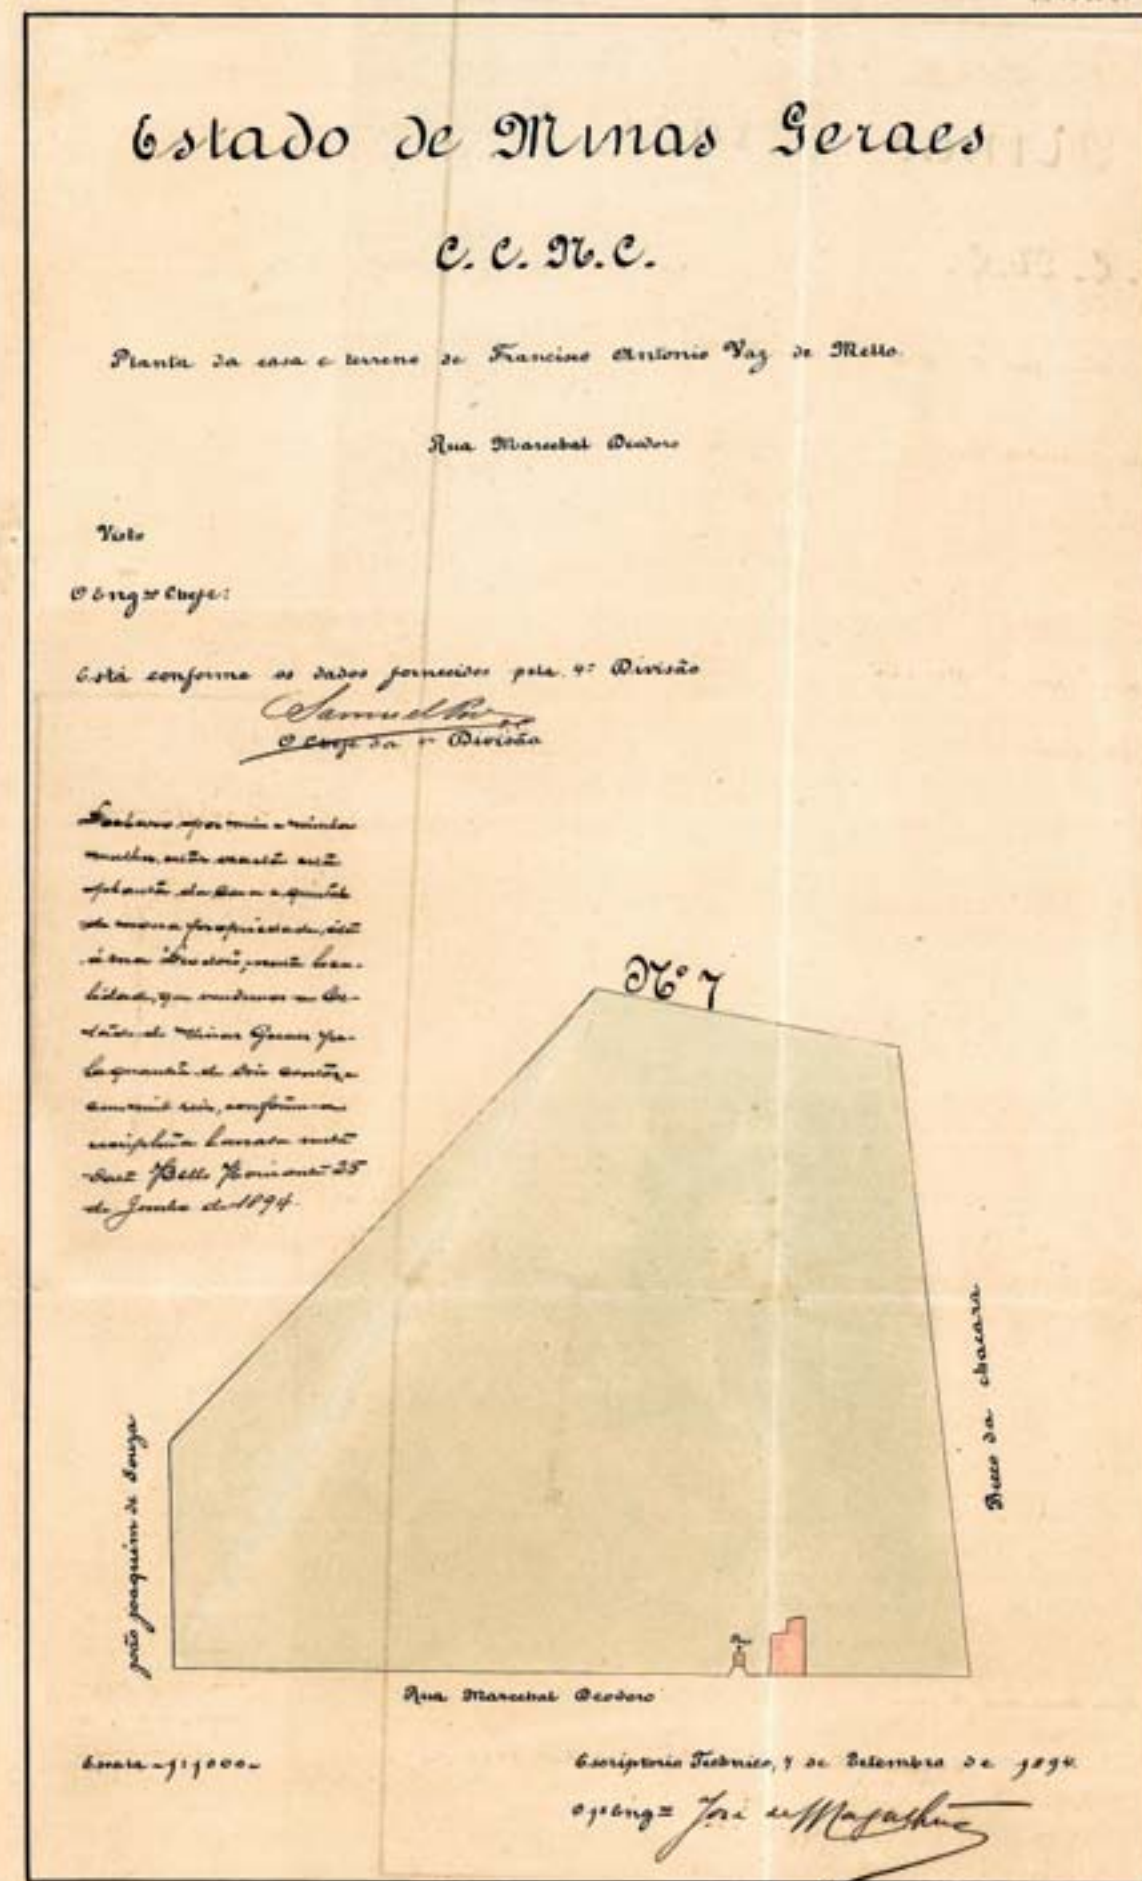 Estado de Minas Geraes
C. C. N. C.
Planta da casa e terreno de Francisco Antonio Vaz de Mello.
Rua Marechal Deodoro
Visto
O Engº Chefe:
Está conforme os dados fornecidos pela 4ª Divisão
Samuel
O Chefe da Divisão
Declaro por mim e minha
mulher, exacta está
a planta da casa e quintal
de nossa propriedade,
á rua Deodoro, nesta loca-
lidade, que vendemos ao Es-
tado de Minas Geraes pe-
la quantia de dois contos e
cem mil reis, conforme a
escriptura lavrada nesta
data Bello Horizonte 25
de Junho de 1894.
Nº 7
João Joaquim de Souza
Becco da chacara
Rua Marechal Deodoro
Escala - 1:1000 -
Escriptorio Technico, 7 de Setembro de 1894.
O 1º Engº José de Magalhães